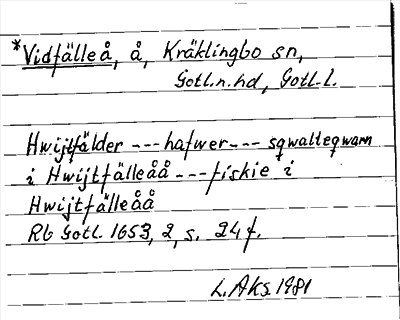 *Vidfälleå, å, Kräklingbo sn,
Gotl.n.hd, Gotl.l.
Hwijtfälder --- hafwer --- sqwalteqwarn
i Hwijtfälleåå --- fiskie i
Hwijtfälleåå
Rb Gotl. 1653, 2, s. 24f.
L.Aks. 1981